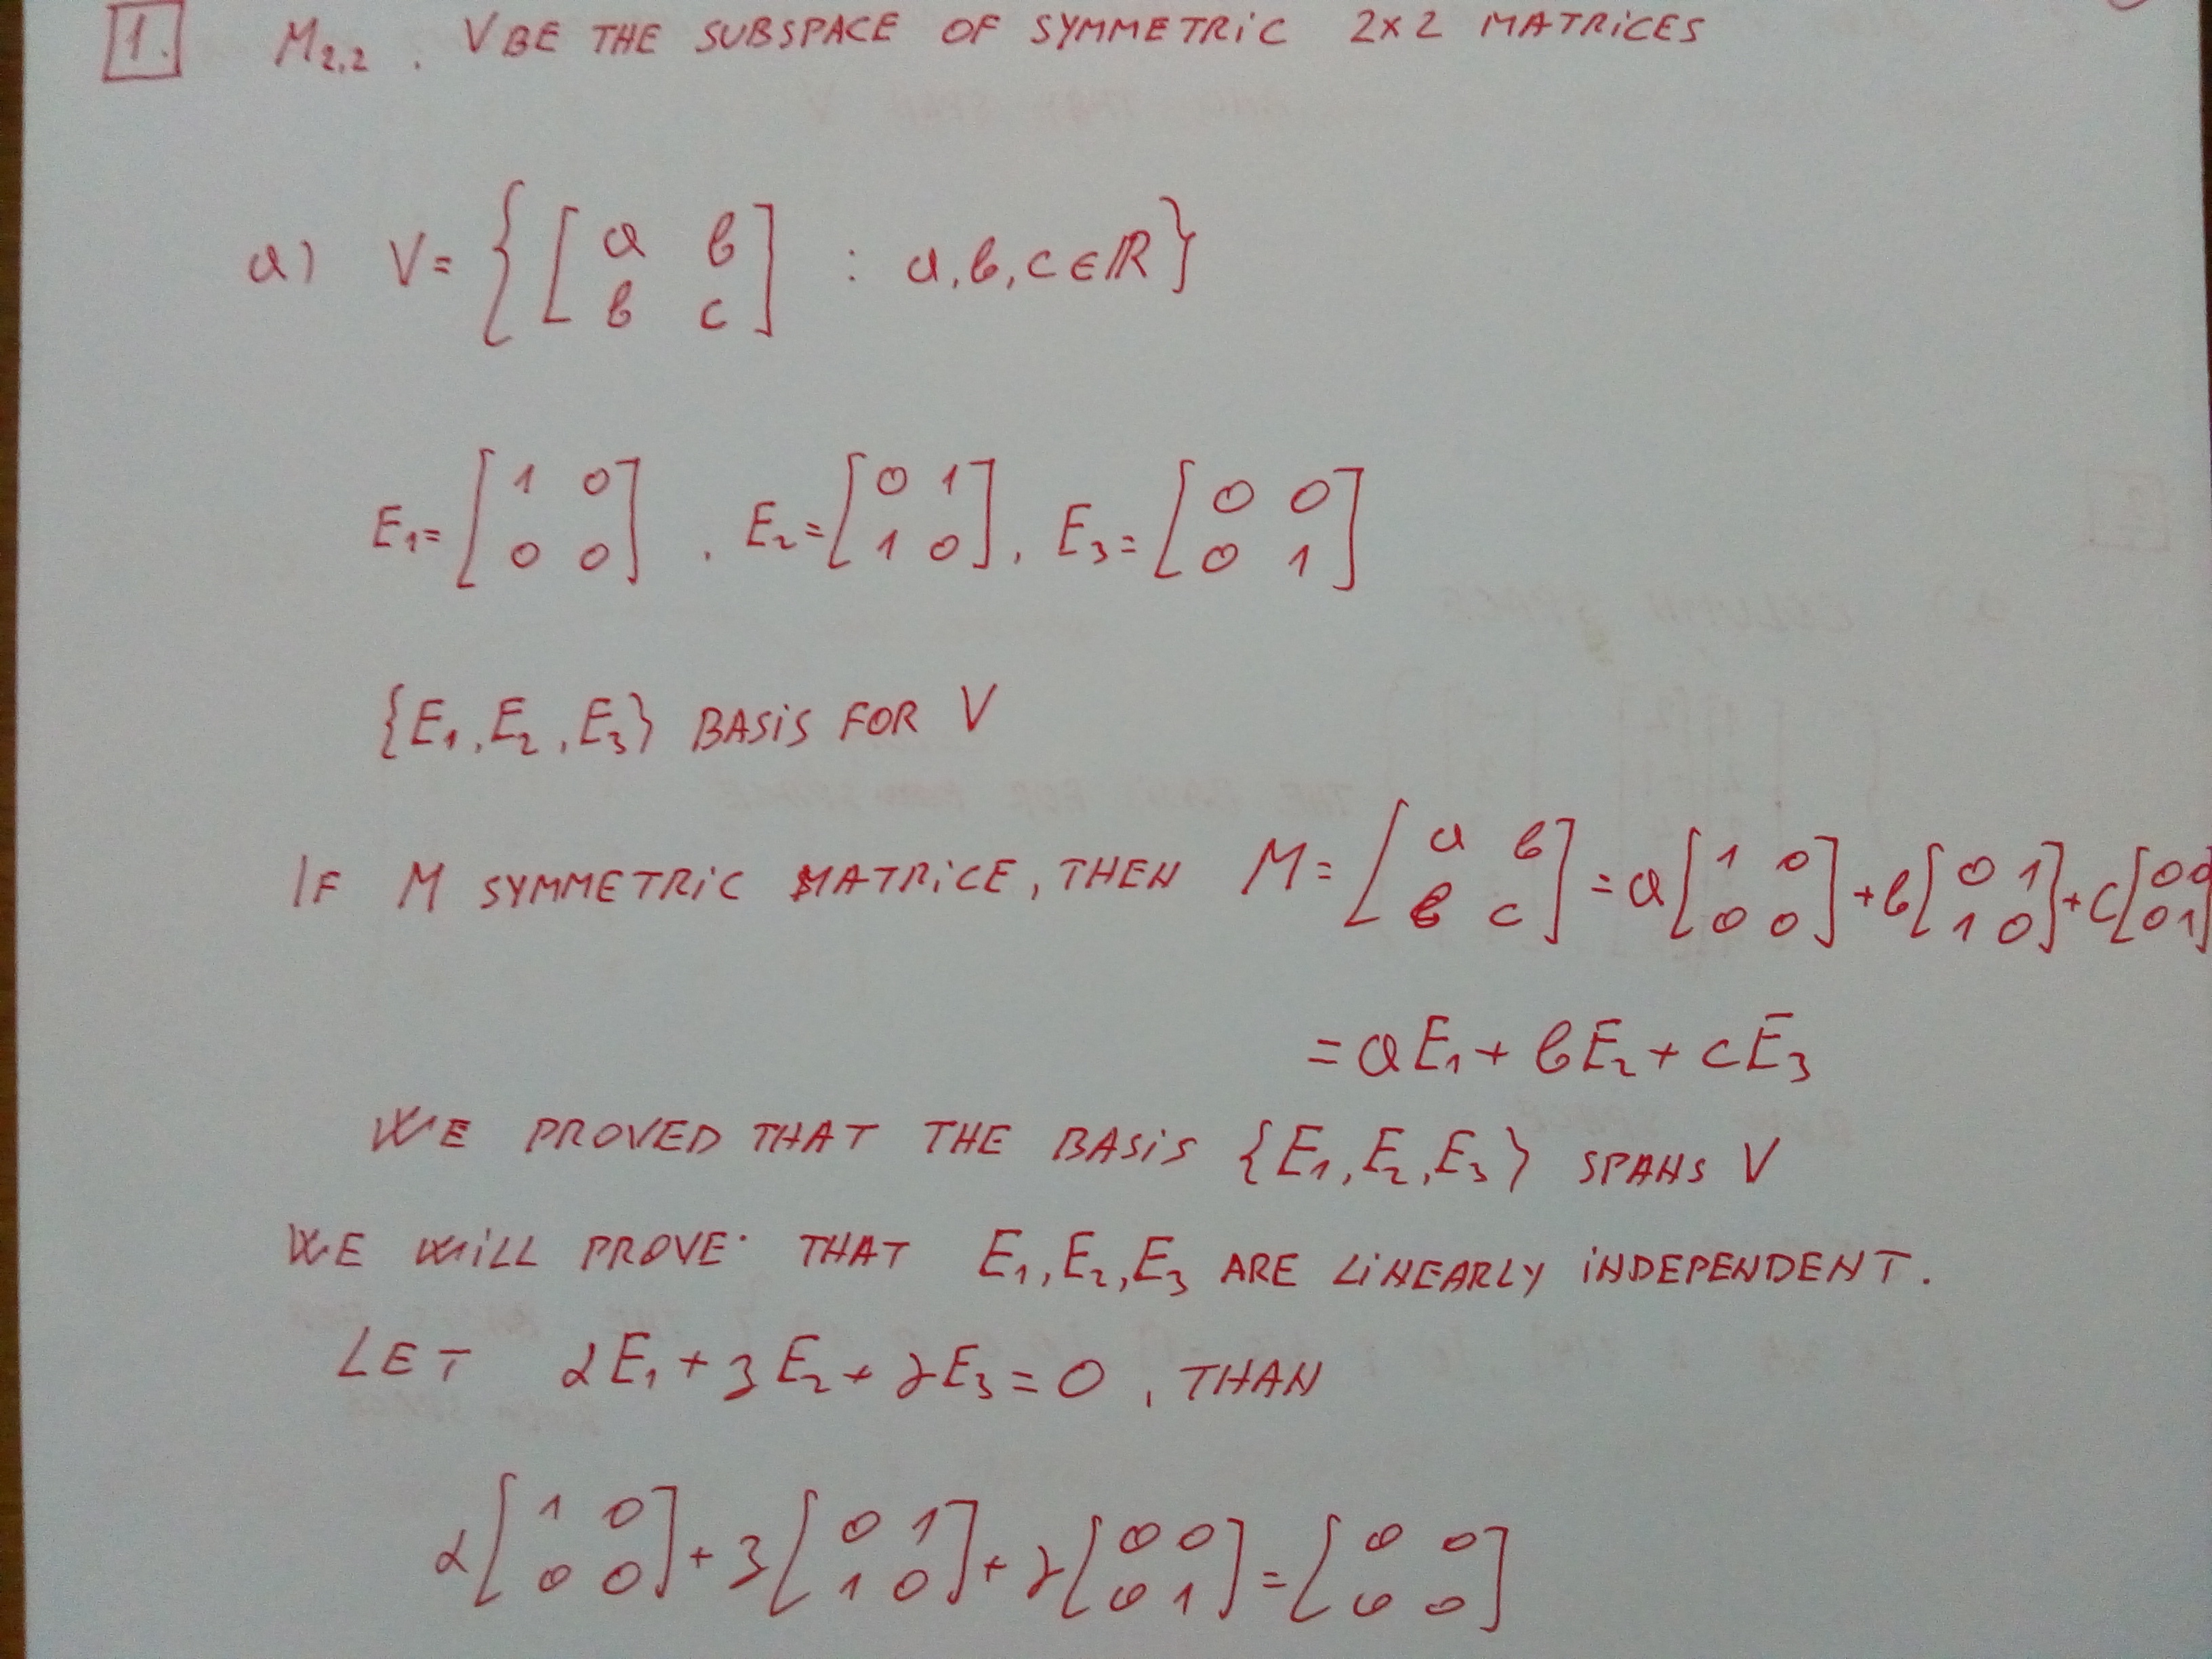 1. M2,2 . V BE THE SUBSPACE OF SYMMETRIC 2×2 MATRICES
a) V = { [ a b ; b c ] : a, b, c ∈ ℝ }
E1 = [ 1 0 ; 0 0 ] , E2 = [ 0 1 ; 1 0 ] , E3 = [ 0 0 ; 0 1 ]
{E1, E2, E3} BASIS FOR V
IF M SYMMETRIC MATRICE, THEN M = [ a b ; b c ] = a [ 1 0 ; 0 0 ] + b [ 0 1 ; 1 0 ] + c [ 0 0 ; 0 1 ]
= aE1 + bE2 + cE3
WE PROVED THAT THE BASIS {E1, E2, E3} SPANS V
WE WILL PROVE THAT E1, E2, E3 ARE LINEARLY INDEPENDENT.
LET αE1 + 3E2 + γE3 = 0 , THAN
α [ 1 0 ; 0 0 ] + 3 [ 0 1 ; 1 0 ] + γ [ 0 0 ; 0 1 ] = [ 0 0 ; 0 0 ]